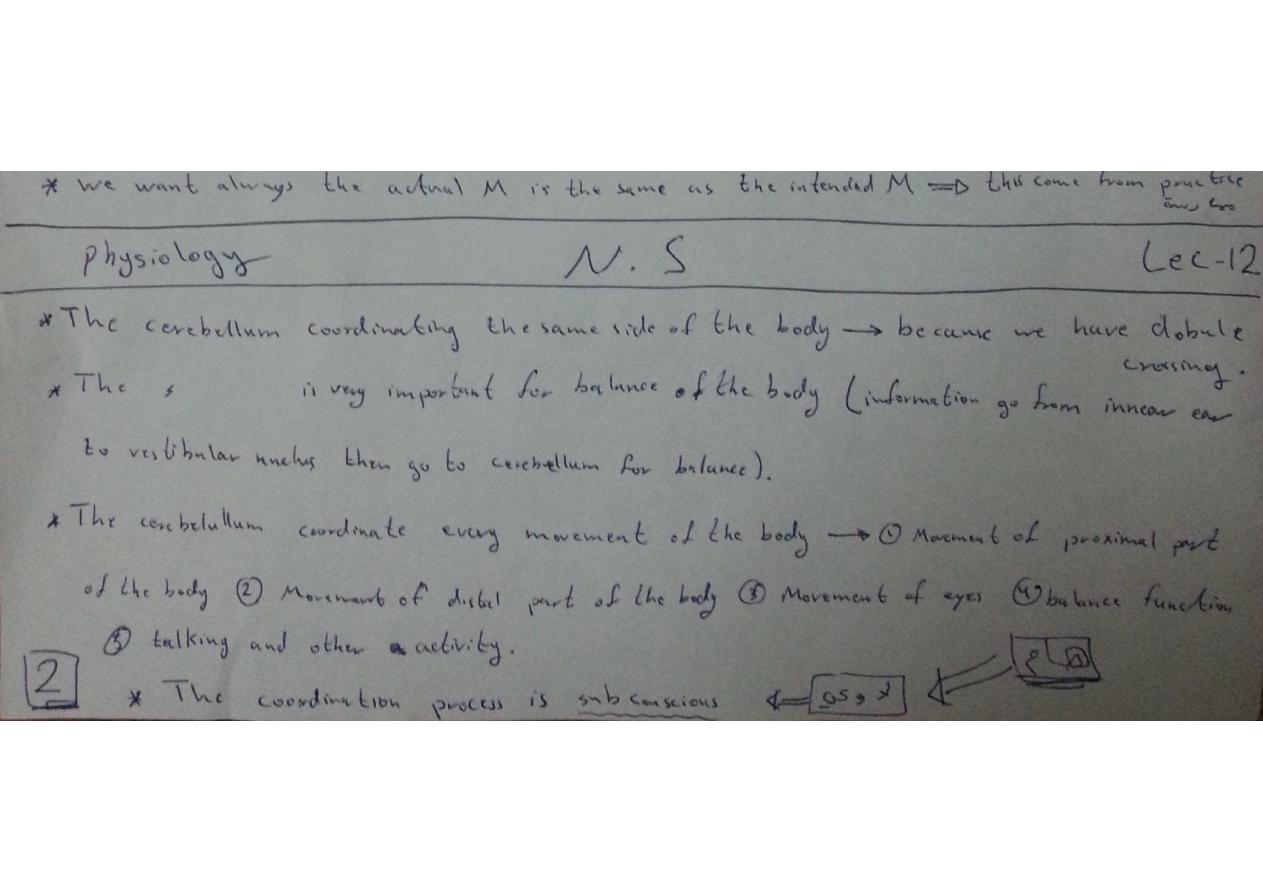 * we want always the actual M is the same as the intended M ⇒ this come from practice
physiology N.S Lec-12
* The cerebellum coordinating the same side of the body → because we have dobule
crossing.
* The 〃 is very important for balance of the body (information go from innear ear
to vestibular nuclus then go to cerebellum for balance).
* The cerebelullum coordinate every movement of the body → ① Movement of proximal part
of the body ② Movement of distal part of the body ③ Movement of eyes ④ balance function
⑤ talking and other activity.
2 * The coordination process is subconscious